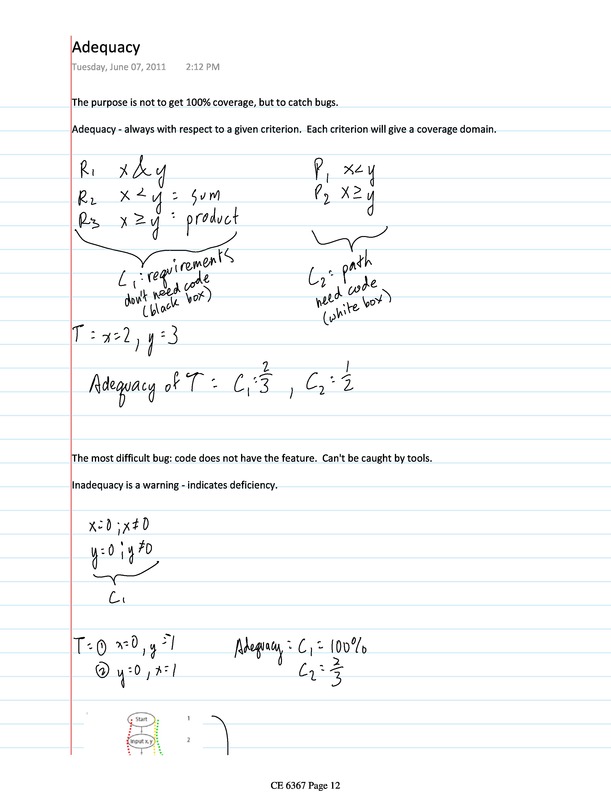 Adequacy
Tuesday, June 07, 2011 2:12 PM
The purpose is not to get 100% coverage, but to catch bugs.
Adequacy - always with respect to a given criterion. Each criterion will give a coverage domain.
R1 x & y
R2 x < y : sum
R3 x ≥ y : product
C1: requirements
don't need code
(black box)
P1 x<y
P2 x≥y
C2: path
need code
(white box)
T: x=2, y=3
Adequacy of T: C1: 2/3, C2: 1/2
The most difficult bug: code does not have the feature. Can't be caught by tools.
Inadequacy is a warning - indicates deficiency.
x=0 ; x≠0
y=0 ; y≠0
C1
T=① x=0, y=1
② y=0, x=1
Adequacy: C1 = 100%
C2 = 2/3
Start 1
Input x, y 2
CE 6367 Page 12